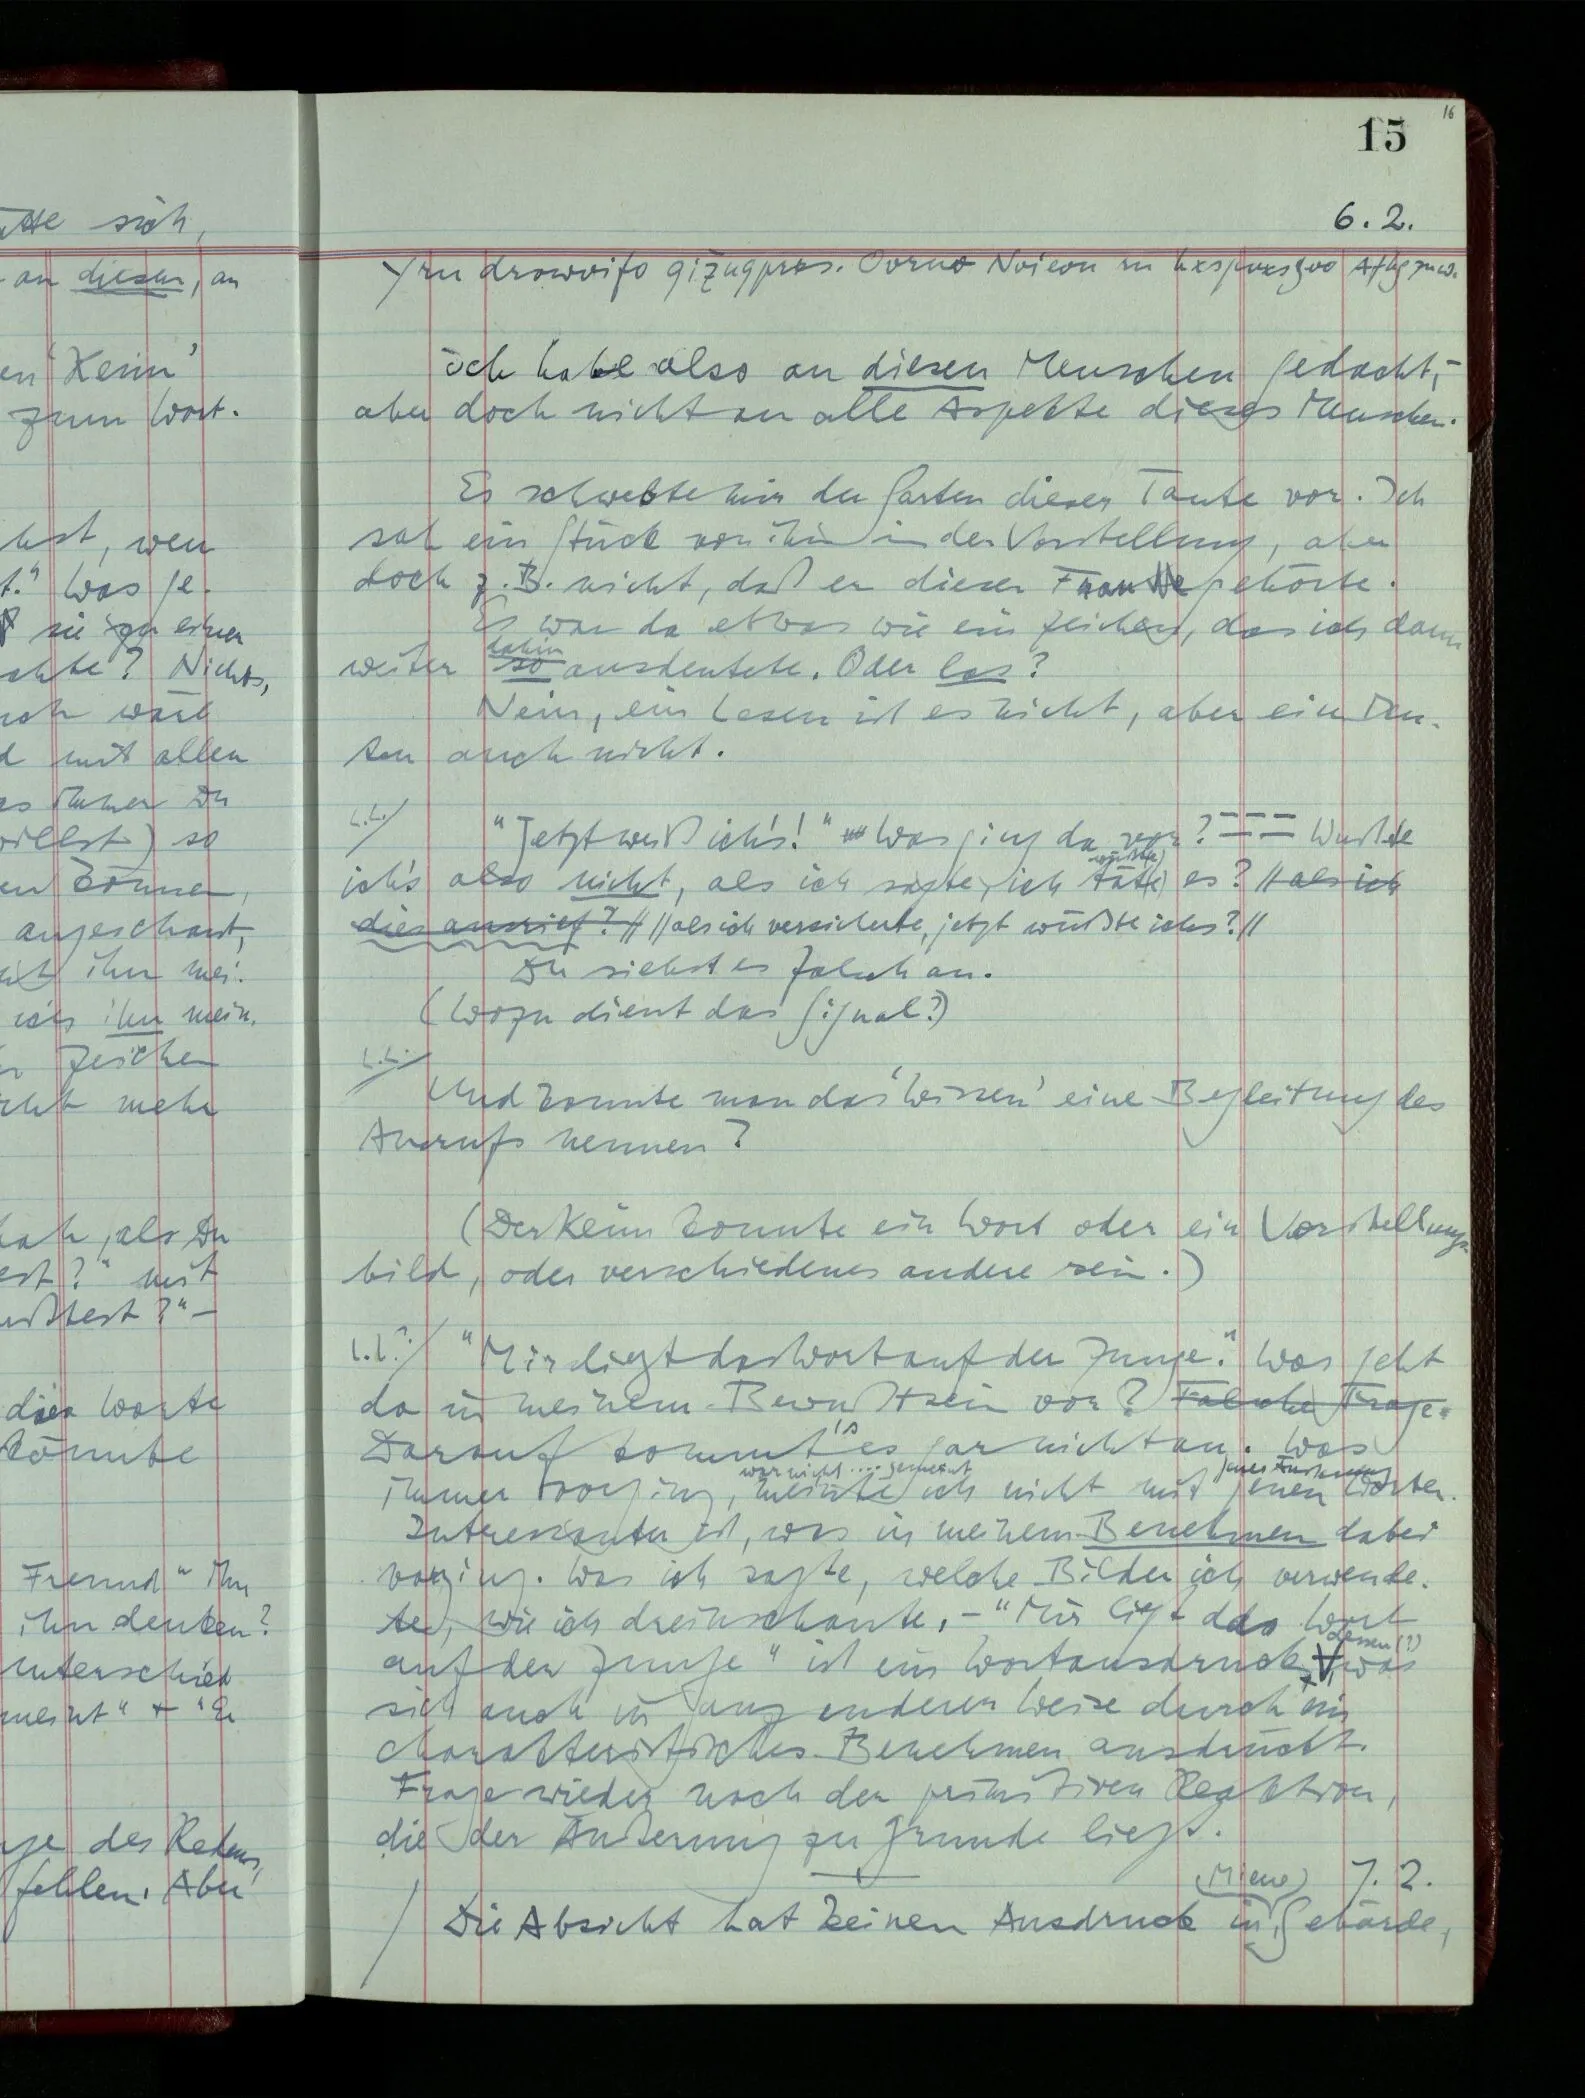 16
15
6.2.
Yru drowoifo gizugprxs. Oorno Nvieon rn
Ich habe also an diesen Menschen gedacht,
aber doch nicht an alle Aspekte dieses Menschen.
Es schwebte mir der Garten dieser Tante vor. Ich
sah ein Stück von ihm in der Vorstellung, aber
doch z.B. nicht, daß er dieser Frau gehörte.
Es war da etwas wie ein Zeichen, das ich dann
dahin
weiter so ausdeutete. Oder las?
Nein, ein Lesen ist es nicht, aber ein Deu-
ten auch nicht.
"Jetzt weiß ich's!" Was ging da vor? Wußte
wüßte
ich's also nicht, als ich sagte, ich täte es? // als ich
dies ausrief? // // als ich versicherte, jetzt wüßte ichs? //
Du siehst es falsch an.
(Wozu dient das Signal?)
Und könnte man das 'Wissen' eine Begleitung des
Ausrufs nennen?
(Der Keim könnte ein Wort oder ein Vorstellungs-
bild, oder verschiedenes andere sein.)
"Mir liegt das Wort auf der Zunge." Was geht
da in meinem Bewußtsein vor? Falsche Frage.
Darauf kommt's es gar nicht an. Was
war nicht .... gemeint jener Äußerung
immer vorging, meinte ich nicht mit jenen Worten.
Interessanter ist, was in meinem Benehmen dabei
vorging. Was ich sagte, welche Bilder ich verwende-
te, wie ich dreinschaute. – "Mir liegt das Wort
dessen (?)
auf der Zunge" ist ein Wortausdruck, was
sich auch in ganz anderer Weise durch ein
charakteristisches Benehmen ausdrückt.
Frage wieder nach der primitiven Reaktion,
die der Äußerung zu Grunde liegt.
Miene 7.2.
Die Absicht hat keinen Ausdruck in Gebärde,
sich,
an diesen, an
'Keim'
zum Wort.
wen
Was ge-
sie zu einer
Nichts,
mit allen
immer Du
willst) so
können,
angeschaut,
ihn mei-
ich ihn mein.
Zeichen
mehr
als Du
mit
Worte
könnte
Freund" ihn
ihn denken?
Unterschied
meint" + "Er
des Redens,
fehlen. Aber